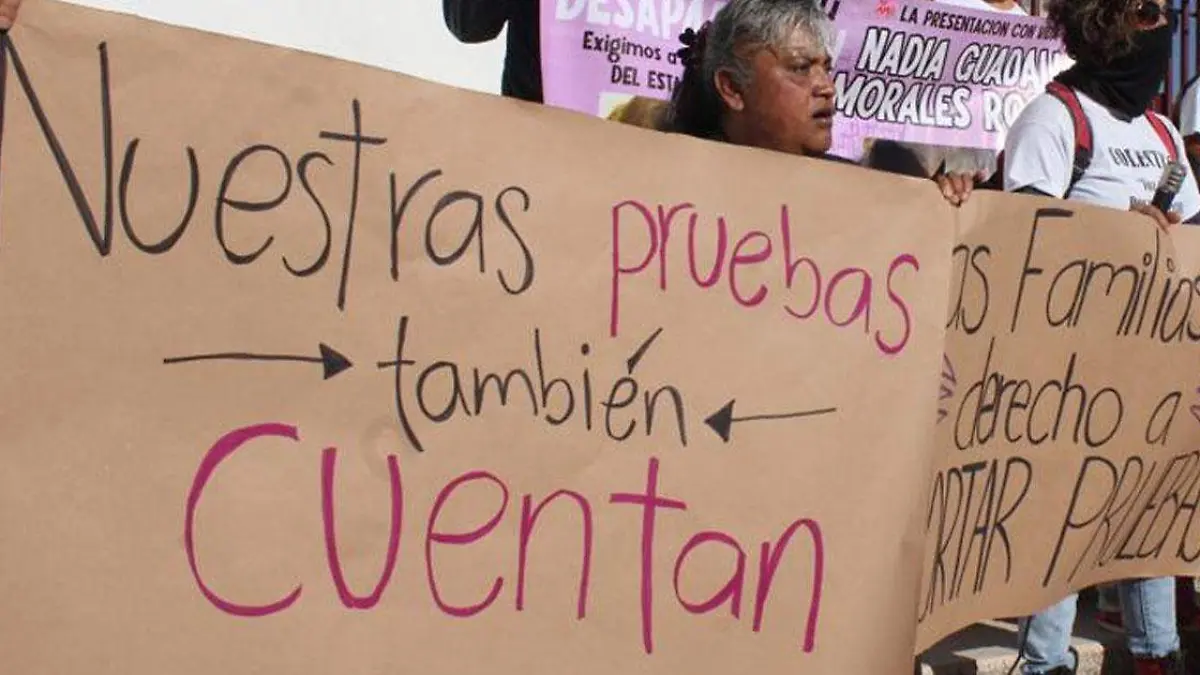 DESAPA
Exigimos a
DEL ESTA
LA PRESENTACIÓN CON VIDA
NADIA GUADAL
MORALES RO
COLECTI
Nuestras pruebas
también
Cuentan
as Familias
derecho a
ORTAR PRUEBAS